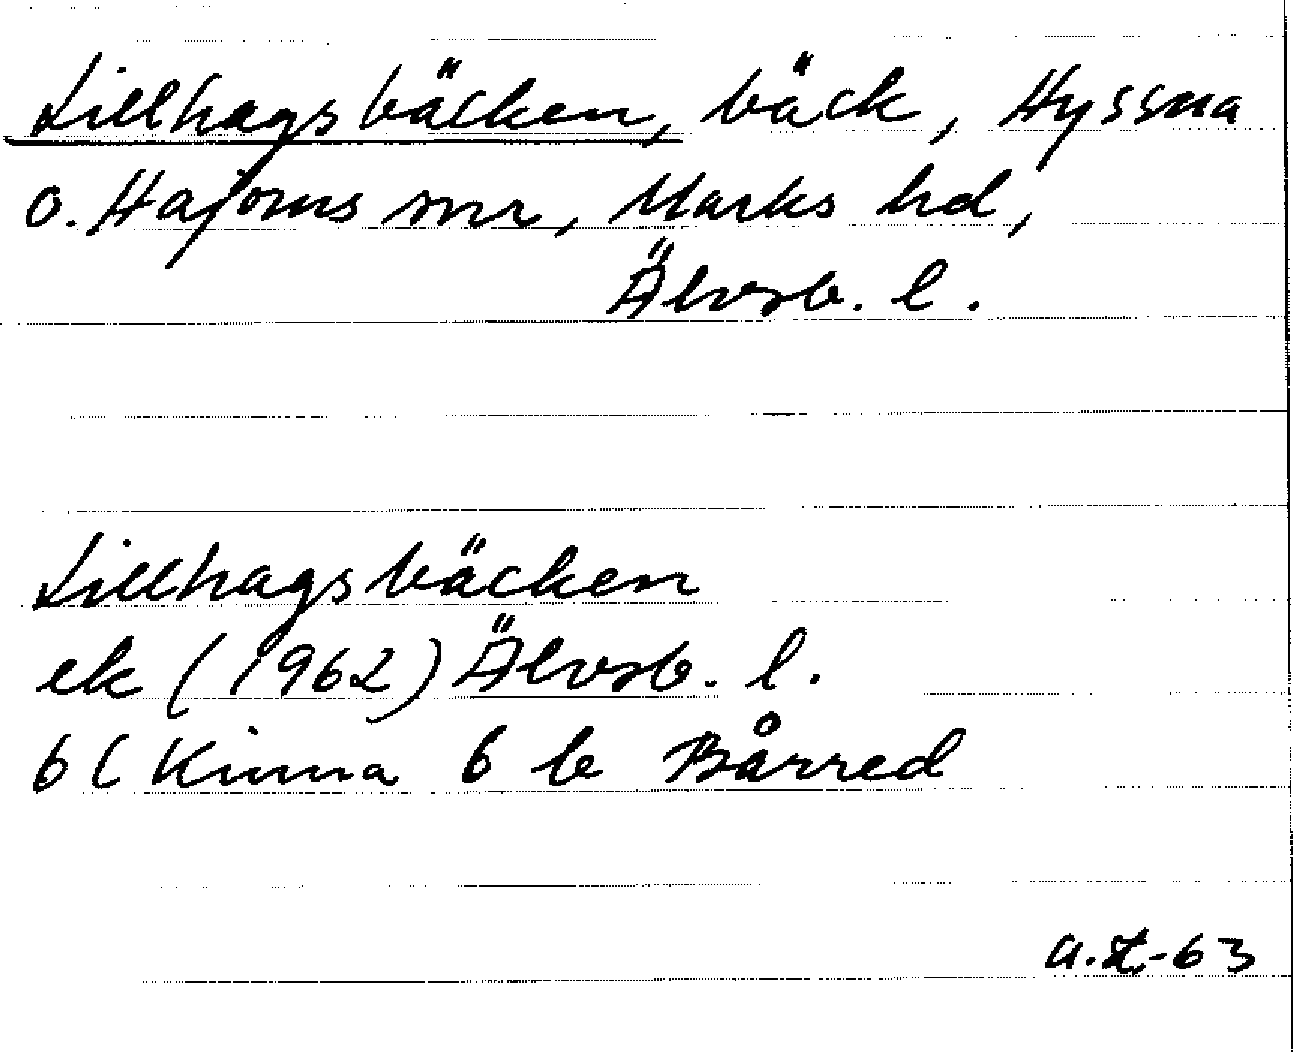 Lillhagsbäcken, bäck, Hyssna
o. Hajoms snr, Marks hd,
Älvsb. l.
Lillhagsbäcken
ek (1962) Älvsb. l.
6C Kinna 6 b Bårred
a.L-63